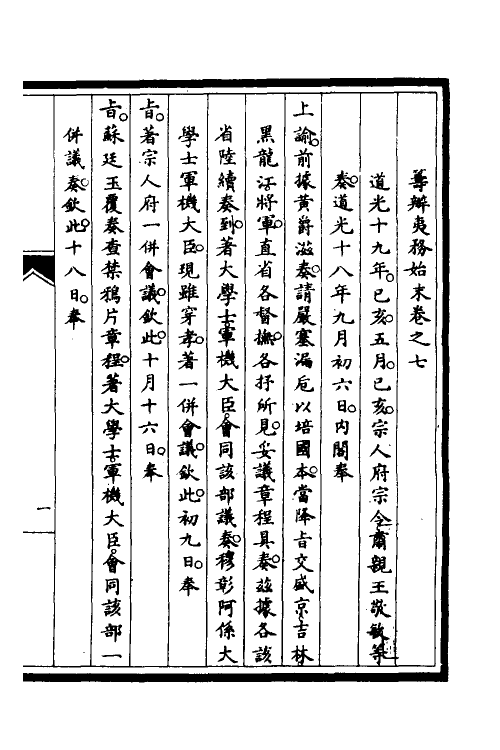 籌辦夷務始末卷之七
道光十九年。己亥。五月。己亥。宗人府宗令肅親王敬敏等
奏。道光十八年九月初六日。內閣奉
上諭。前據黃爵滋奏。請嚴塞漏卮以培國本。當降旨交盛京。吉林
黑龍江將軍。直省各督。撫。各抒所見。妥議章程具奏。茲據各該
省陸續奏到。著大學士。軍機大臣。會同該部議奏。穆彰阿係大
學士軍機大臣。現雖穿孝。著一併會議。欽此。初九日。奉
旨。著宗人府一併會議。欽此。十月十六日。奉
旨。蘇廷玉覆奏查禁鴉片章程。著大學士。軍機大臣。會同該部一
併議奏。欽此。十八日。奉
一